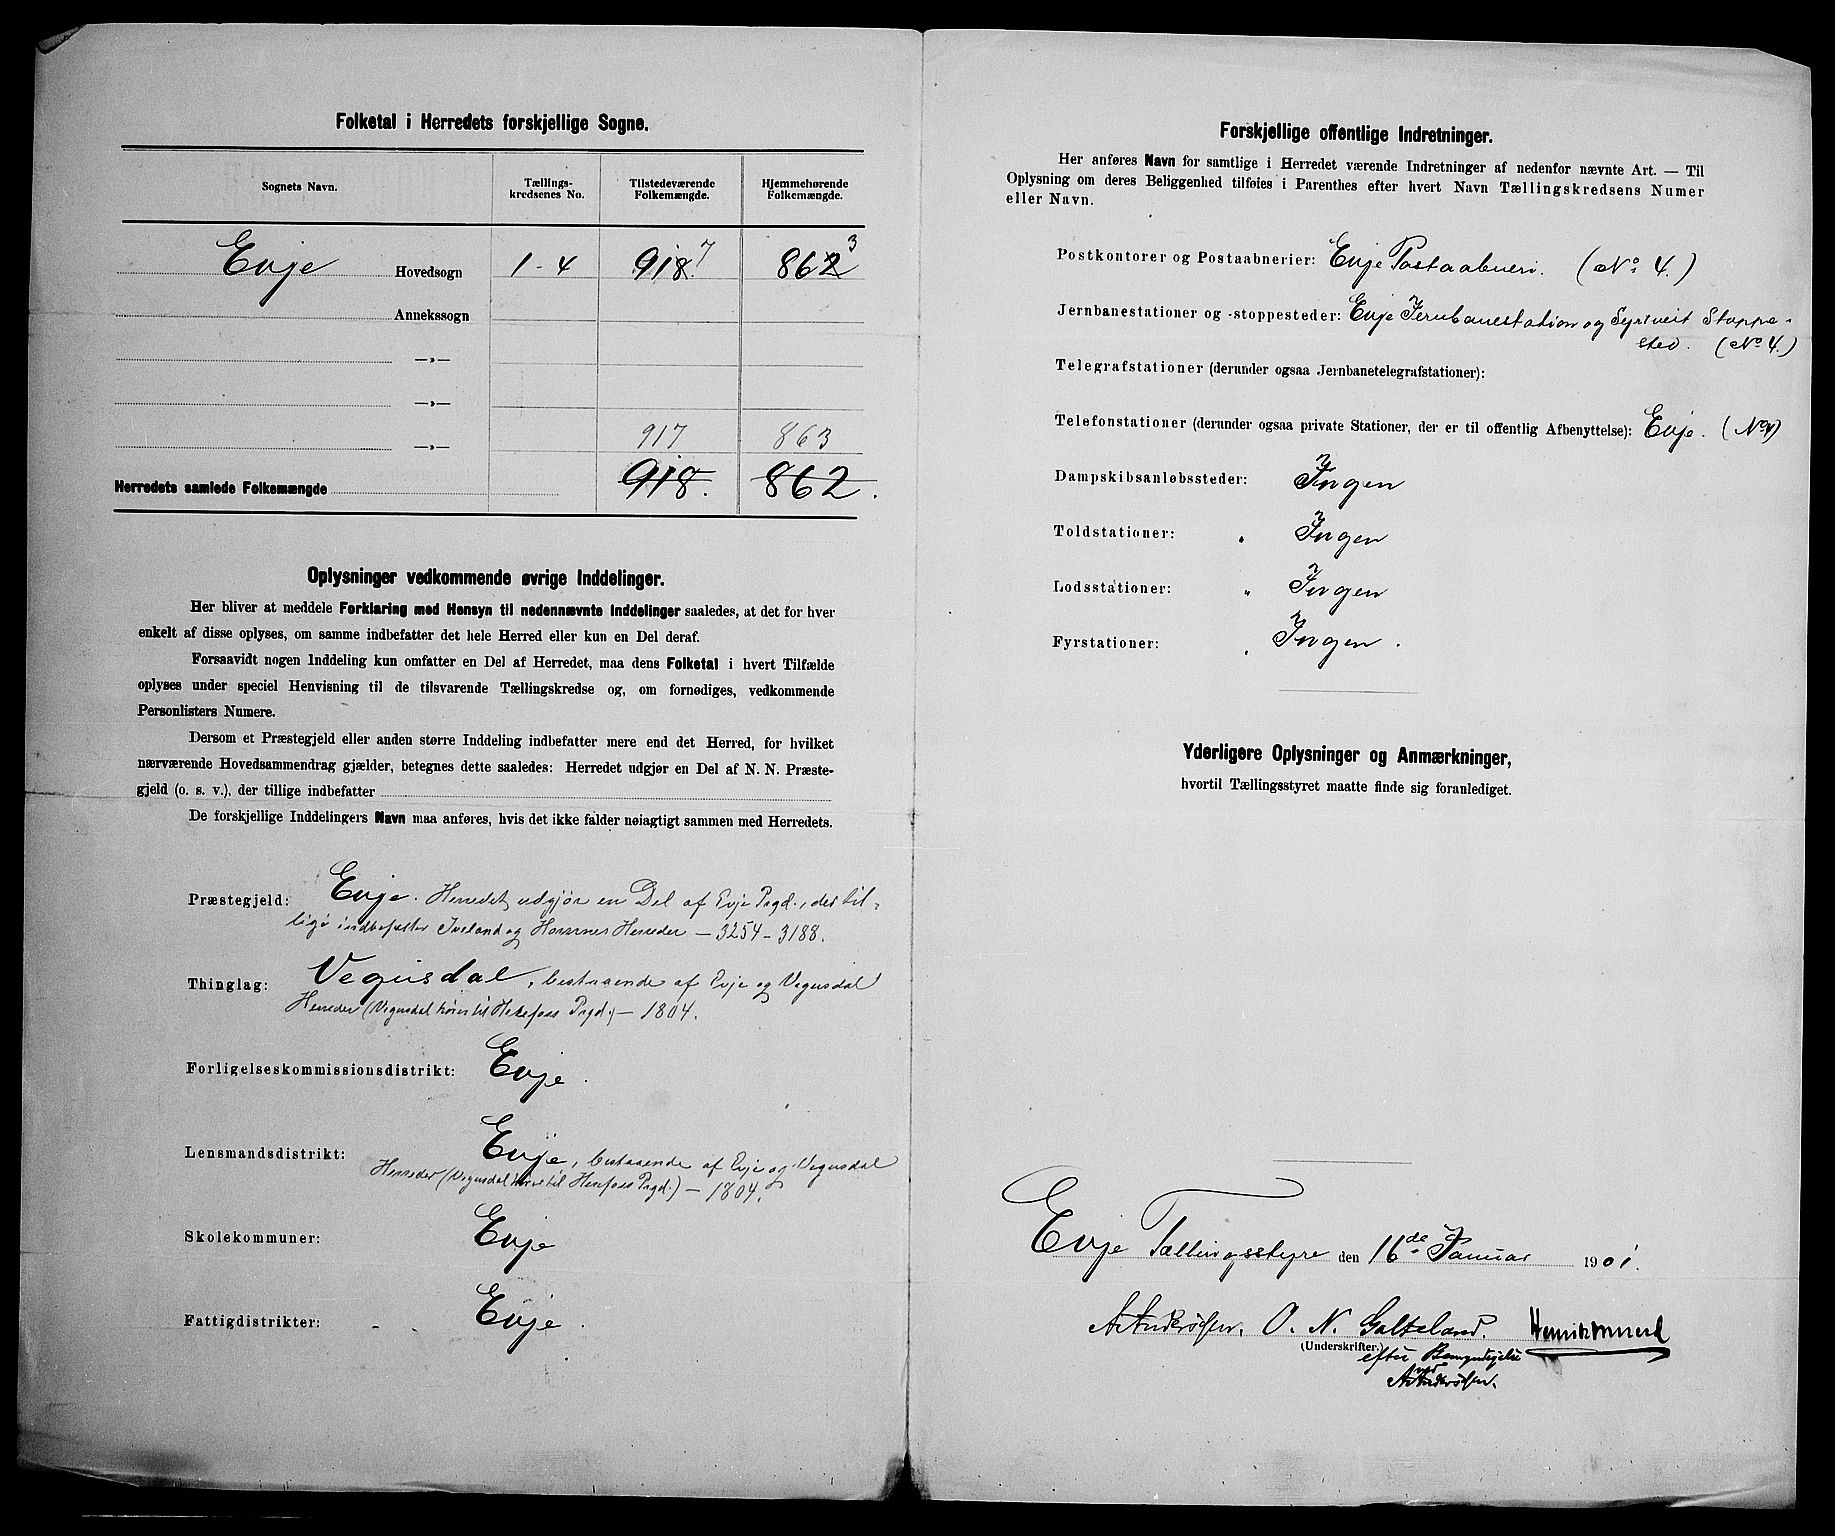 Folketal i Herredets forskjellige Sogne.
Sognets Navn. Tællings-kredsenes No. Tilstedeværende Folkemængde. Hjemmehørende Folkemængde.
Evje Hovedsogn 1-4 918 7 862 3
Annekssogn
—»—
—»—
—»— 917 863
Herredets samlede Folkemængde 918. 862.
Oplysninger vedkommende øvrige Inddelinger.
Her bliver at meddele Forklaring med Hensyn til nedennævnte Inddelinger saaledes, at det for hver
enkelt af disse oplyses, om samme indbefatter det hele Herred eller kun en Del deraf.
Forsaavidt nogen Inddeling kun omfatter en Del af Herredet, maa dens Folketal i hvert Tilfælde
oplyses under speciel Henvisning til de tilsvarende Tællingskredse og, om fornødiges, vedkommende
Personlisters Numere.
Dersom et Præstegjeld eller anden større Inddeling indbefatter mere end det Herred, for hvilket
nærværende Hovedsammendrag gjælder, betegnes dette saaledes: Herredet udgjør en Del af N. N. Præste-
gjeld (o. s. v.), der tillige indbefatter
De forskjellige Inddelingers Navn maa anføres, hvis det ikke falder nøiagtigt sammen med Herredets.
Præstegjeld: Evje. Herredet udgjør en Del af Evje Prgd., der til-
lige indbefatter Iveland og Hornnes Herreder — 3254 - 3188.
Thinglag: Vegusdal, bestaaende af Evje og Vegusdal
Herreder (Vegusdal hører til Herefoss Prgd.) — 1804.
Forligelseskommissionsdistrikt: Evje.
Lensmandsdistrikt: Evje, bestaaende af Evje og Vegusdal
Herreder (Vegusdal hører til Herefoss Prgd.) — 1804.
Skolekommuner: Evje
Fattigdistrikter: Evje.
Forskjellige offentlige Indretninger.
Her anføres Navn for samtlige i Herredet værende Indretninger af nedenfor nævnte Art. — Til
Oplysning om deres Beliggenhed tilføies i Parenthes efter hvert Navn Tællingskredsens Numer
eller Navn.
Postkontorer og Postaabnerier: Evje Postaabneri. (No. 4.)
Jernbanestationer og -stoppesteder: Evje Jernbanestation og Syrtveit Stoppe-
sted. (No 4.)
Telegrafstationer (derunder ogsaa Jernbanetelegrafstationer):
Telefonstationer (derunder ogsaa private Stationer, der er til offentlig Afbenyttelse): Evje. (No 4)
Dampskibsanløbssteder: Ingen
Toldstationer: " Ingen
Lodsstationer: " Ingen
Fyrstationer: " Ingen.
Yderligere Oplysninger og Anmærkninger,
hvortil Tællingsstyret maatte finde sig foranlediget.
Evje Tællingsstyre den 16de Januar 1901.
A Andersen. O. N. Galteland.
(Underskrifter.)
efter Bemyndigelse
ved
A Andersen.